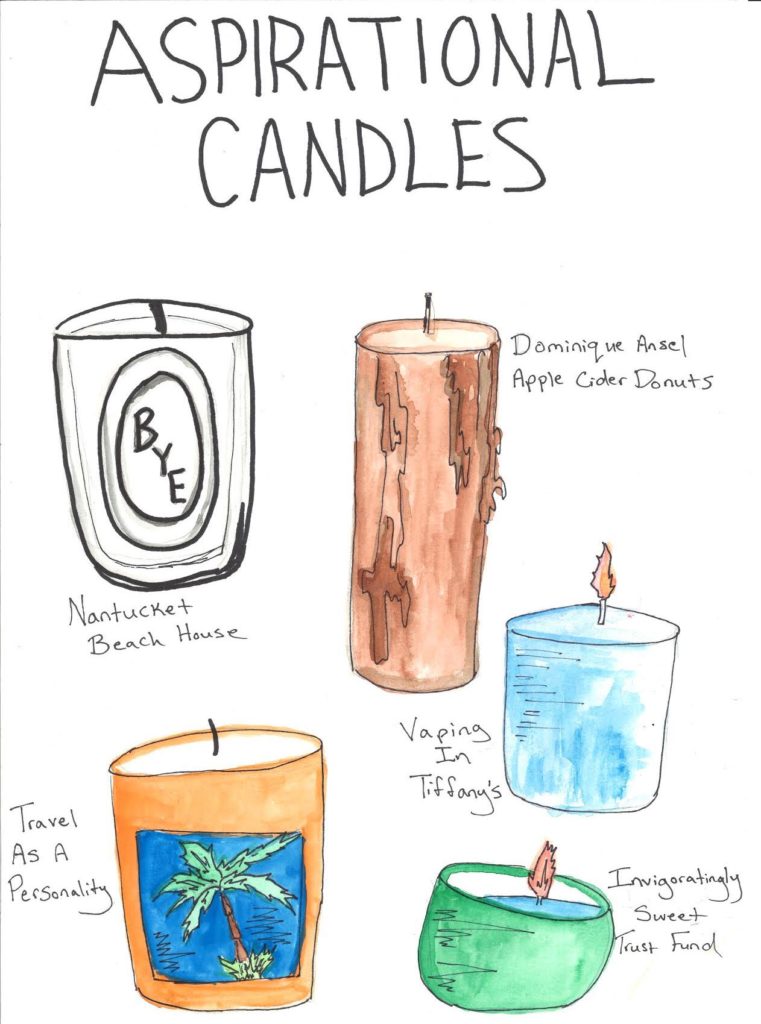 ASPIRATIONAL
CANDLES
BYE
Nantucket
Beach House
Dominique Ansel
Apple Cider Donuts
Vaping
In
Tiffany's
Travel
As A
Personality
Invigoratingly
Sweet
Trust Fund